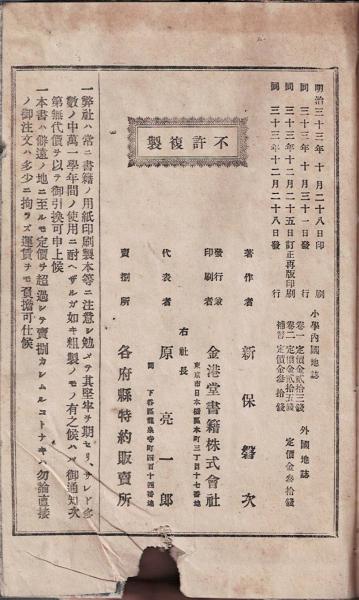 明治三十三年十月二十八日印刷
同三十三年十月三十一日發行
同三十三年十二月二十五日訂正再版印刷
同三十三年十二月二十八日發行
小學內國地誌
卷一定價金貳拾三錢
卷二定價金貳拾五錢
補習定價金參拾錢
外國地誌
定價金參拾錢
不許複製
著作者
新保磐次
發行兼印刷者
東京市日本橋區本町三丁目十七番地
金港堂書籍株式會社
右社長
代表者
原亮一郎
同下谷區龍泉寺町四百十四番地
賣捌所
各府縣特約販賣所
一弊社ハ常ニ書籍ノ用紙印刷製本等ニ注意シ勉メテ其堅牢ヲ期セリ、サレド多
數ノ中萬一學年間ノ使用ニ耐ヘザルガ如キ粗製ノモノ有之候ハヾ御通知次
第無代價ヲ以テ御引換可申上候
一本書ハ僻遠ノ地ニ至ルモ定價ヲ超過シテ賣捌カシムルコトナキハ勿論直接
ノ御注文ハ多少ニ拘ラズ運賃ヲモ負擔可仕候